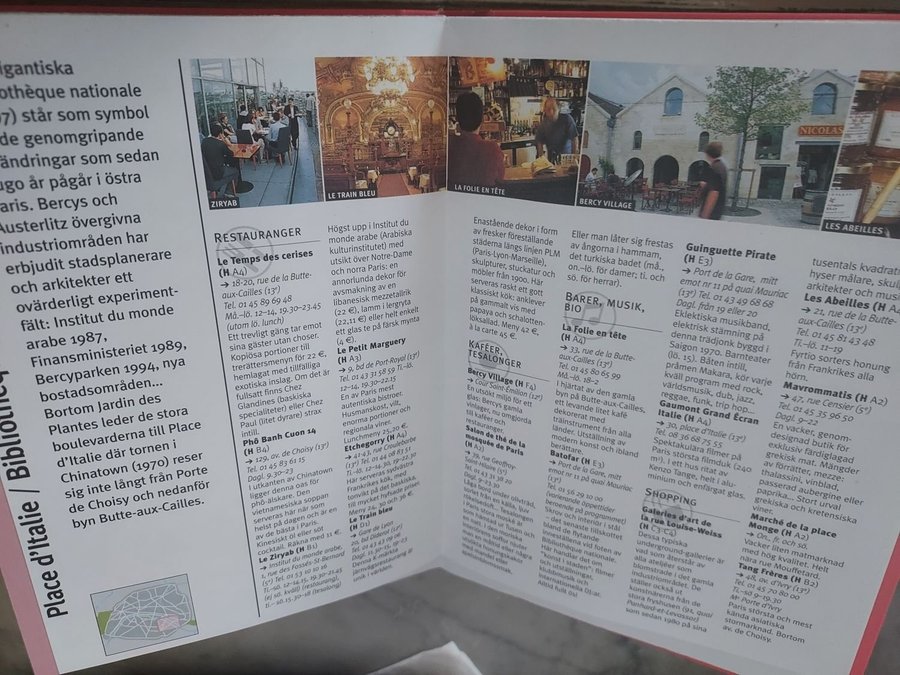 igantiska
othèque nationale
7) står som symbol
de genomgripande
ändringar som sedan
ugo år pågår i östra
aris. Bercys och
Austerlitz övergivna
industriområden har
erbjudit stadsplanerare
och arkitekter ett
ovärderligt experiment-
fält: Institut du monde
arabe 1987,
Finansministeriet 1989,
Bercyparken 1994, nya
bostadsområden...
Bortom Jardin des
Plantes leder de stora
boulevarderna till Place
d'Italie där tornen i
Chinatown (1970) reser
sig inte långt från Porte
de Choisy och nedanför
byn Butte-aux-Cailles.
Place d'Italie / Bibliothèq
ZIRYAB
LE TRAIN BLEU
LA FOLIE EN TÊTE
BERCY VILLAGE
NICOLAS
LES ABEILLES
RESTAURANGER
Le Temps des cerises
(H A4)
→ 18-20, rue de la Butte-
aux-Cailles (13e)
Tel. 01 45 89 69 48
Må.–lö. 12-14, 19.30–23.45
(utom lö. lunch)
Ett trevligt gäng tar emot
sina gäster utan choser.
Kopiösa portioner till
trerättersmenyn för 22 €,
hemlagat med tillfälliga
exotiska inslag. Om det är
fullsatt finns Chez
Glandines (baskiska
specialiteter) eller Chez
Paul (litet dyrare) strax
intill.
Phô Banh Cuon 14
(H B4)
→ 129, av. de Choisy (13e)
Tel. 01 45 83 61 15
Dagl. 9-23
I utkanten av Chinatown
ligger denna oas för
phô-älskare. Den
vietnamesiska soppan
serveras här när som
helst på dagen och är en
av de bästa i Paris.
Kinesiskt öl eller söt
cocktail. Räkna med 11 €.
Le Ziryab (H B1)
→ Institut du monde arabe,
1, rue des Fossés-St-Bernard
(5e) Tel. 01 53 10 10 16
Ti.–sö. 12-14, 19.30-21.45
(ej sö. kväll) (restaurang),
Ti.–sö. 15.30-18 (tesalong)
Högst upp i Institut du
monde arabe (Arabiska
kulturinstitutet) med
utsikt över Notre-Dame
och norra Paris: en
annorlunda dekor för
avsmakning av en
libanesisk mezzetallrik
(22 €), lamm i legryta
(22,11 €) eller helt enkelt
ett glas te på färsk mynta
(4 €).
Le Petit Marguery
(H A3)
→ 9, bd de Port-Royal (13e)
Tel. 01 43 31 58 59 Ti.–lö.
12-14, 19.30-22.15
En av Paris mest
autentiska bistroer.
Husmanskost, vilt,
enorma portioner och
regionala viner.
Lunchmeny 25,20 €.
Etchegorry (H A4)
→ 41-43, rue Croulebarbe
(13e) Tel. 01 44 08 83 51
Må.–lö. 12-14.30, 19-22.30
Här serveras sydvästra
Frankrikes kök, med
tonvikt på det baskiska,
till mycket fyrhandade priser.
Meny 24, 30 €.
Le Train bleu
(H D1)
→ Gare de Lyon,
20, bd Diderot (12e)
Tel. 01 43 43 09 06
Dagl. 11.30-15, 19-23
Denna
järnvägsrestaurang är
unik i världen.
Enastående dekor i form
av fresker föreställande
städerna längs linjen PLM
(Paris-Lyon-Marseille),
skulpturer, stuckatur och
möbler från 1900. Här
serveras raskt ett gott
klassiskt kök: anklever
på gammalt vis med
papaya och schalotten-
löksallad. Meny 42 €,
à la carte 45 €.
KAFÉER,
TESALONGER
Bercy Village (H F4)
→ Cour Saint-Émilion (12e)
En utsökt miljö för ett
glas: Bercys gamla
vinlager, nu omgjorda
till kaféer och
restauranger.
Salon de thé de la
mosquée de Paris
(H A2)
→ 39, rue Geoffroy-
Saint-Hilaire (5e)
Tel. 01 43 31 38 20
Dagl. 9-23.30
Eller man låter sig frestas
av ångorna i hammam,
det turkiska badet (må.,
on.–lö. för damer; ti. och
sö. för herrar).
BARER, MUSIK,
BIO
La Folie en tête
(H A4)
→ 33, rue de la Butte-
aux-Cailles (13e)
Tel. 01 45 80 65 99
Må.–lö. 18-2
I hjärtat av den gamla
byn på Butte-aux-Cailles,
ett levande litet kafé
dekorerat med
instrument från alla
länder. Utställning av
modern konst och ibland
konserter.
Batofar (H E3)
→ Port de la Gare, mitt
emot nr 11 på quai Mauriac
(13e)
Tel. 01 56 29 10 00
(varierande öppettider
beroende på programmet)
Guinguette Pirate
(H E3)
→ Port de la Gare, mitt
emot nr 11 på quai Mauriac
(13e) Tel. 01 43 49 68 68
Dagl. från 19 eller 20
Eklektiska musikband,
elektrisk stämning på
denna trädjonk byggd i
Saigon 1970. Barnteater
(lö. 15). Båten intill,
pråmen Makara, kör varje
kväll program med rock,
världsmusik, dub, jazz,
reggae, funk, trip hop...
Gaumont Grand Écran
Italie (H A4)
→ 30, place d'Italie (13e)
Tel. 08 36 68 75 55
Spektakulära filmer på
Paris största filmduk (240
m²) i ett hus ritat av
Kenzo Tange, helt i alu-
minium och enfärgat glas.
SHOPPING
Galeries d'art de
la rue Louise-Weiss
(H C3-C4)
tusentals kvadratm
hyser målare, skulp
arkitekter och musi
Les Abeilles (H A4
→ 21, rue de la Butte-
aux-Cailles (13e)
Tel. 01 45 81 43 48
Ti.–lö. 11-19
Fyrtio sorters honung
från Frankrikes alla
hörn.
Mavrommatis (H A2)
→ 47, rue Censier (5e)
Tel. 01 45 35 96 50
Dagl. 9-22
En vacker, genom-
designad butik för
exklusiv färdiglagad
grekisk mat. Mängder
av förrätter, mezze:
thalassini, vinblad,
passerad aubergine eller
paprika... Stort urval
grekiska och kretensiska
viner.
Marché de la place
Monge (H A2)
→ On., fr. och sö.
Vacker liten matmarknad
med hög kvalitet. Helt
nära rue Mouffetard.
Tang Frères (H B4)
→ 48, av. d'Ivry (13e)
Tel. 01 45 70 80 00
Ti.–sö 9-19.30
M° Porte d'Ivry
Paris största och mest
kända asiatiska
stormarknad. Bortom
av. de Choisy.